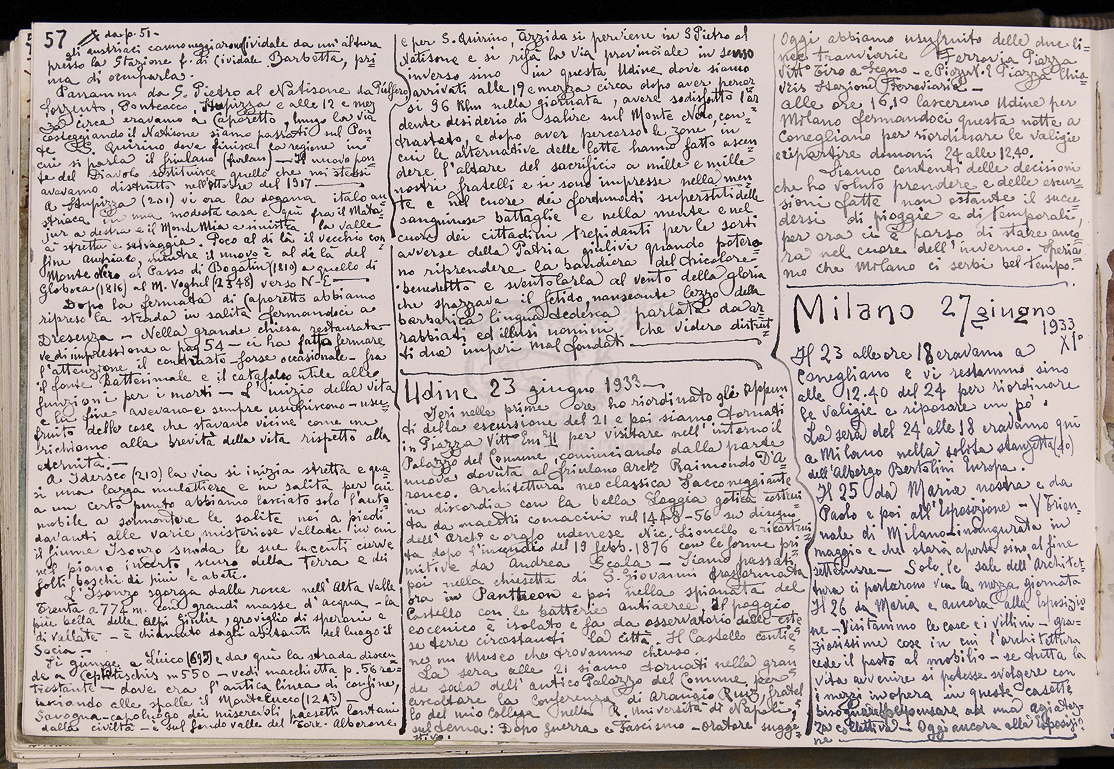 57 da p. 51-
gli austriaci cannoneggiarono Cividale da un'altura
presso la Stazione f. di Cividale Barbetta, pri
ma di occuparla.
Passammo da S. Pietro al Natisone da
Sorzento, Ponteacco e alle 12 e mez
za circa eravamo a Caporetto, lungo la via
costeggiando il Natisone siamo passati sul Pon
te S. Quirino dove finisce la regione in
cui si parla il friulano (furlan) - Il nuovo pon
te del Diavolo sostituisce quello che noi stessi
avevamo distrutto nell'ottobre del 1917
A Stupizza (201) vi era la dogana italo au
striaca in una modesta casa e qui fra il Mata
jur a destra e il Monte Mia a sinistra la valle
è stretta e selvaggia. Poco al di là il vecchio con
fine austriaco, mentre il nuovo è al di là del
Monte Nero al Passo di Bogatin (1810) e quello di
Globoca (1816) al M. Voghel (2348) verso N-E
Dopo la fermata di Caporetto abbiamo
ripreso la strada in salita fermandoci a
Dresenza - Nella grande chiesa restaurata
vedi impressione a pag 54 - ci ha fatto fermare
l'attenzione il contrasto - forse occasionale - fra
il fonte Battesimale e il catafalco utile alle
funzioni per i morti - L'inizio della vita
e la fine avevano e sempre usufruiscono - usu
frutto delle cose che stavano vicine come un
richiamo alla brevità della vita rispetto alla
eternità.
A Idersco (210) la via si inizia stretta e qua=
si una larga mulattiera e in salita per cui
a un certo punto abbiamo lasciato solo l'auto
mobile a sormontare le salite noi a piedi
davanti alle varie misteriose vallate in cui
il fiume Isonzo snoda le sue lucenti curve
nel piano incerto, scuro della terra e dei
folti boschi di pini e abeti.
L'Isonzo sgorga dalle rocce nell'Alta Valle
Trenta a 772 m. con grandi masse d'acqua - la
più bella delle Alpi Giulie, groviglio di speroni e
di vallate - è chiamato dagli abitanti del luogo il
Socia -
Si giunge a Luico (695) e da qui la strada discen
de a m 550 - vedi macchietta p. 56
- dove era l'antica linea di confine,
lasciando alle spalle il Monte Cucco (1243)
Savogna - capoluogo dei miserevoli paesetti lontani
dalla civiltà - e sul fondo valle del Torr. Alberone
e per S. Quirino, Azzida si perviene in S Pietro al
Natisone e si rifà la via provinciale in senso
inverso sino in questa Udine dove siamo
arrivati alle 19 e mezza circa dopo aver percor
si 96 Khm nella giornata, avere sodisfatto l'ar
dente desiderio di salire sul Monte Nero, con=
trastato, e dopo aver percorso le zone in
cui le alternative delle lotte hanno fatto ascen=
dere l'altare del sacrificio a mille e mille
nostri fratelli e si sono impresse nella men
te e nel cuore dei fortunati superstiti delle
sanguinose battaglie e nella mente e nel
cuore dei cittadini trepidanti per le sorti
avverse della Patria giulivi quando potero
no riprendere la bandiera del tricolore
benedetto e sventolarla al vento della gloria
che spazzava il fetido, nauseante lezzo della
barbarica lingua tedesca parlata da ar
rabbiati ed illusi uomini che videro distrut
ti due imperi mal fondati.
Udine 23 giugno 1933
Ieri nelle prime ore ho riordinato gli appun
ti della escursione del 21 e poi siamo tornati
in Piazza Vitt° Em. II per visitare nell'interno il
Palazzo del Comune cominciando dalla parte
nuova dovuta al friulano Archo Raimondo D'A
ronco. Architettura neo classica
in discordia con la bella Loggia gotica costrui
ta da maestri comacini nel 1448-56 su disegno
dell'Arch° e orafo udenese Nic. Lionello e ricostrui
ta dopo l'incendio del 19 febb. 1876 con le forme pri
mitive da Andrea Scala - Siamo passati
poi nella chiesetta di S. Giovanni trasformata
ora in Pantheon e poi nella spianata del
Castello con le batterie antiaeree. Il poggio
eocenico è isolato e fa da osservatorio delle este
se terre circostanti la città. Il Castello contie
ne un Museo che trovammo chiuso.
La sera alle 21 siamo tornati nella gran
de sala dell'antico Palazzo del Comune per
ascoltare la Conferenza di Arangio Ruiz, fratel
lo del mio Collega nella R. Università di Napoli,
sul tema: Dopo guerra e Fascismo - oratore sugge
stivo!
Oggi abbiamo usufruito delle due li=
nee Tranviarie Ferrovia Piazza
Vitt° Tiro a Segno - e Piazza Chia
vris Stazioni Ferroviarie -
alle ore 16,10 lasceremo Udine per
Milano fermandoci questa notte a
Conegliano per riordinare le valigie
e ripartire domani 24 alle 12,40.
Siamo contenti delle decisioni
che ho voluto prendere e delle escur
sioni fatte non ostante il succe
dersi di pioggie e di temporali,
per ora ci è parso di stare anco
ra nel cuore dell'inverno. Speria
mo che Milano ci serbi bel tempo.
Milano 27 giugno
1933
XI°
Il 23 alle ore 18 eravamo a
Conegliano e vi restammo sino
alle 12.40 del 24 per riordinare
le valigie e riposare un po'.
La sera del 24 alle 18 eravamo qui
a Milano nella solita stanzetta (40)
dell'Albergo Bertolini Europa.
Il 25 da Maria nostra e da
Paolo e poi all'Esposizione - V Trien
nale di Milano - inaugurata in
maggio e che starà aperta sino al fine
settembre - Solo, le sale dell'Architet
tura ci portarono via la mezza giornata
Il 26 da Maria e ancora alla Esposizio
ne - Visitammo le case e i villini - gra
ziosissime cose in cui l'architettura
cede il posto al mobilio - se tutta la
vita avvenire si potesse svolgere con
i mezzi in opera in queste casette
bisognerebbe pensare ad una agiatez
za collettiva - Oggi ancora alla Esposizi
ne